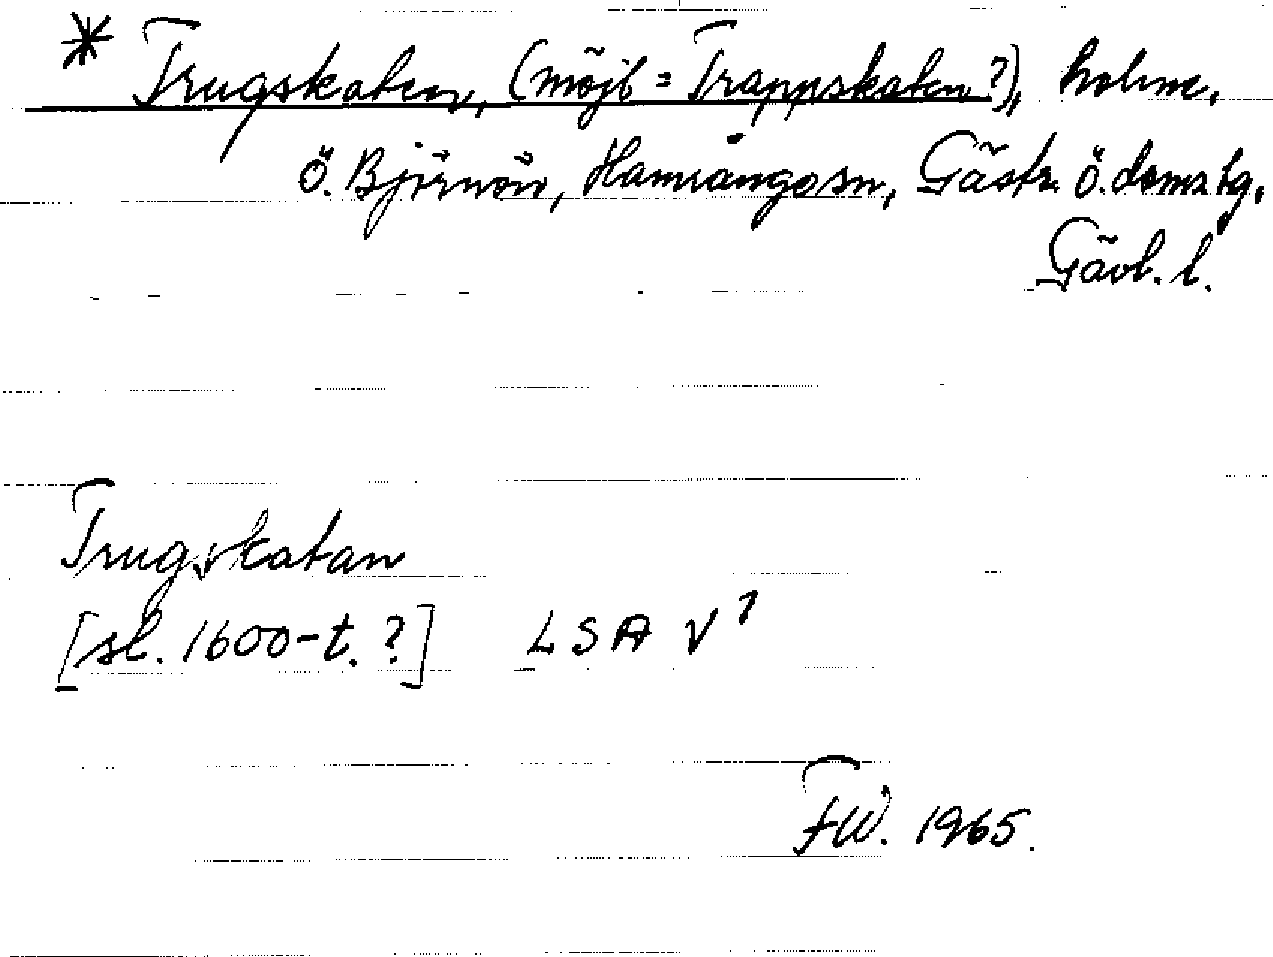 * Trugskaten, (möjl = Trappskaten?), holme,
Ö. Björnön, Hamrångesn, Gästr. Ö. doms tg,
Gävl. l.
Trugskatan
[sl. 1600-t. ?] LSA V 1
FW. 1965.